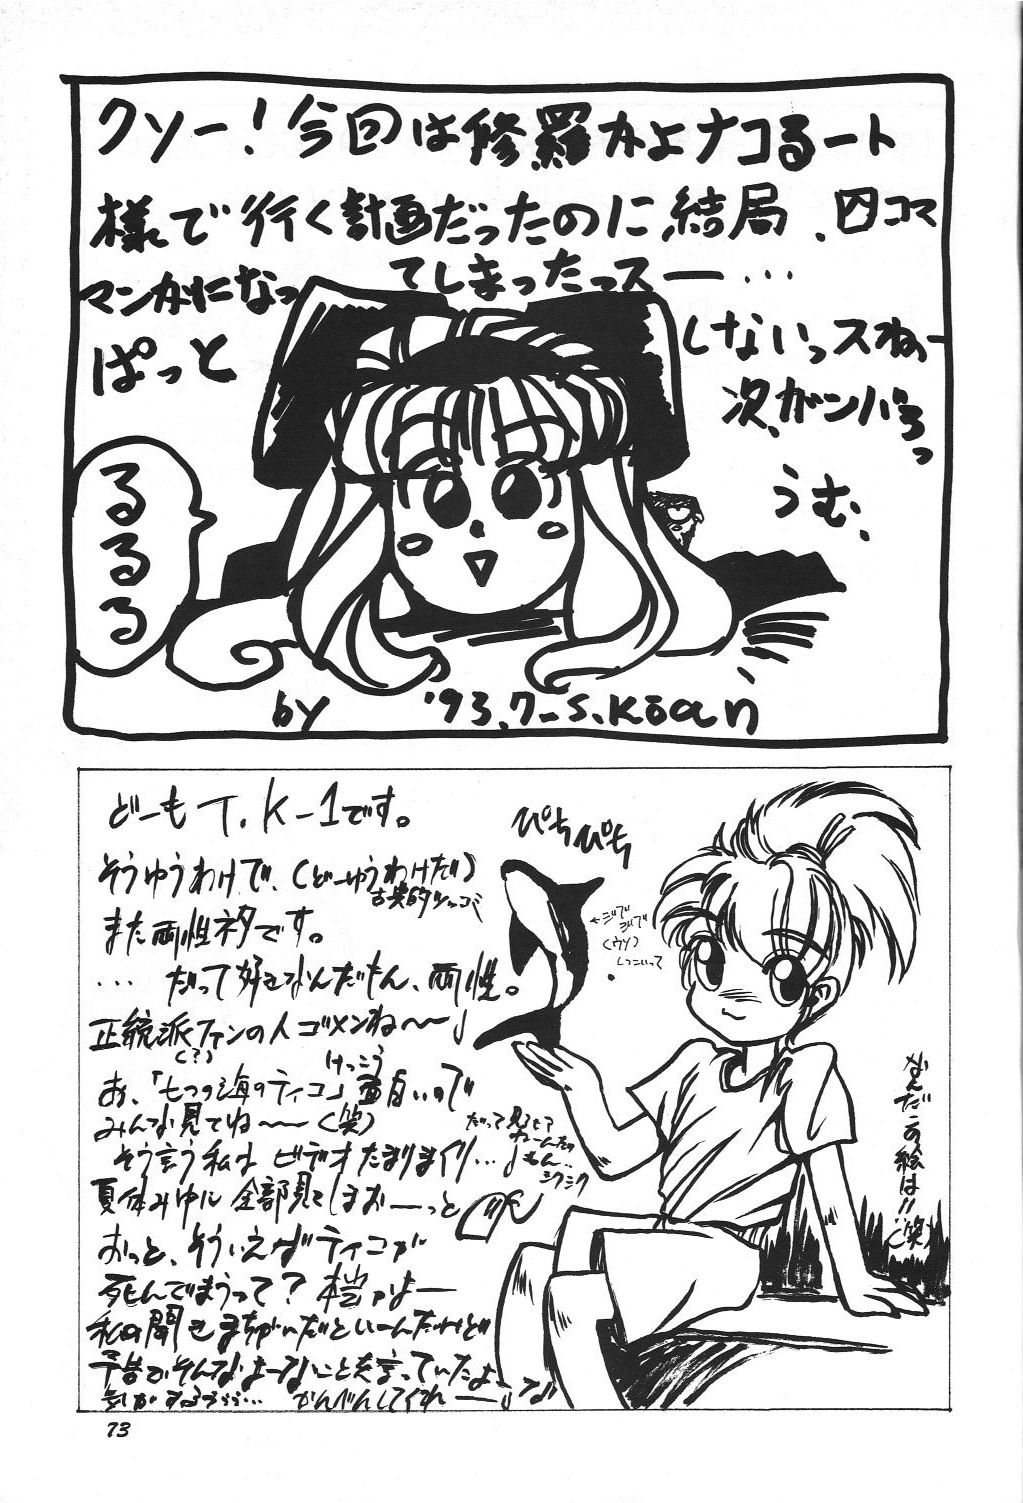 クソー!今回は修羅かよナコるート
様で行く計画だったのに、結局、四コマ
マンガになっ
てしまったっスー…
ぱっと
しないっスねぇー
次、ガンバろっ
うむ、
るるる
by '93.7- S.Kōan
どーもT.K-1です。
そうゆうわけで、(どーゆうわけだ)
古典的ツッコミ
また両性ネタです。
…だって好きなんだもん、両性。
正統派ファンの人ゴメンね〜〜♩
(?)
あ、「七つの海のティコ」けっこう面白いので
みんな見てね〜〜(笑)
そう言う私は ビデオたまりまくり…♩
だって見るヒマ
ねーんだ
もん…
シクシク
夏休みゆル 全部見てしまおーーっと
おっと、そういえばティコが
死んでまうって?本当かよー
私の聞きまちがいだといーんだけど
予告でそんなよーなことを言っていたよーな
気がするううぅ… かんべんしてくれーー
ぴちぴち
←ジブ
ジブ
(ウソ)
しつこいって
なんだこの絵は!!(笑)
73